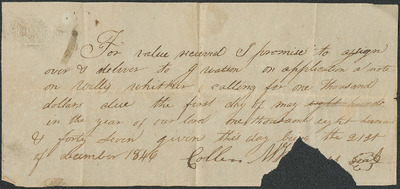 For value received I promise to assign
over & deliver to J watson on application a note
on Willy whitaker calling for one thousand
dollars due the first day of may
in the year of our lord one thousand eight hun
& forty seven given this day being the 21st
of december 1846 Collin Seal